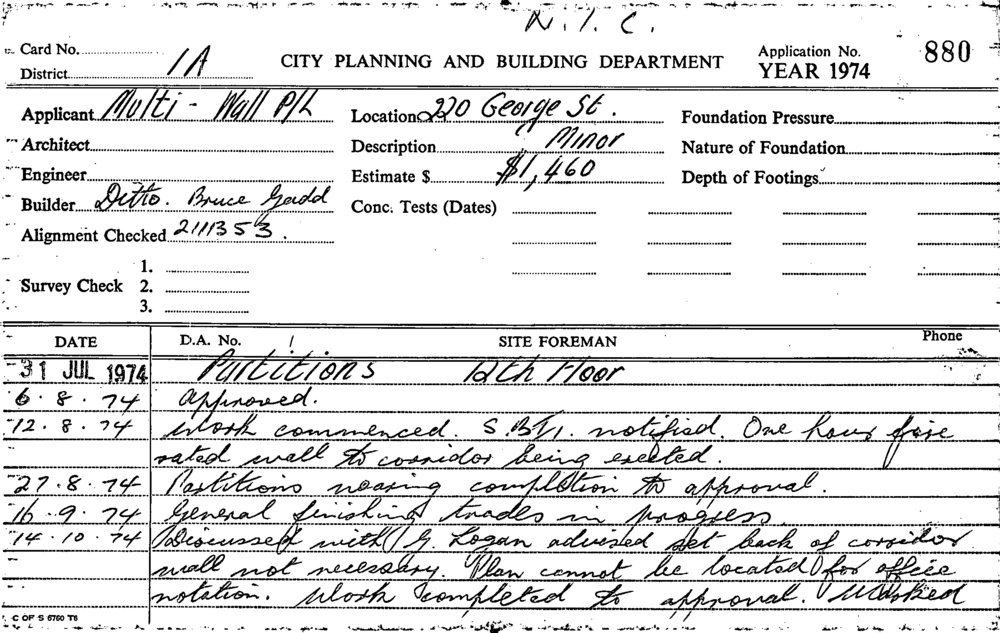 N.I.C.
Card No.
District 1A
CITY PLANNING AND BUILDING DEPARTMENT
Application No. 880
YEAR 1974
Applicant Multi - Wall P/L
Location 220 George St.
Foundation Pressure
Architect
Description Minor
Nature of Foundation
Engineer
Estimate $ $1,460
Depth of Footings
Builder Ditto. Bruce Gadd
Conc. Tests (Dates)
Alignment Checked 2111353.
Survey Check
1.
2.
3.
DATE D.A. No. / SITE FOREMAN Phone
31 JUL 1974 Partitions 12th Floor
6.8.74 Approved.
12.8.74 Work commenced. S.B.I. notified. One hour fire
rated wall to corridor being erected.
27.8.74 Partitions nearing completion to approval.
16.9.74 General finishing trades in progress
14.10.74 Discussed with G. Logan advised set back of corridor
wall not necessary. Plan cannot be located for office
notation. Work completed to approval.
C OF S 6760 T6